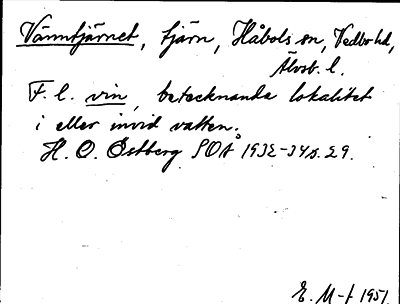 Vänntjärnet, tjärn, Håbols sn, Vedbo hd,
Älvsb. l.
F. l. vin, betecknande lokalitet
i eller invid vatten.
H. O. Östberg SOÅ 1932-34 s. 29.
E. M-f 1951.